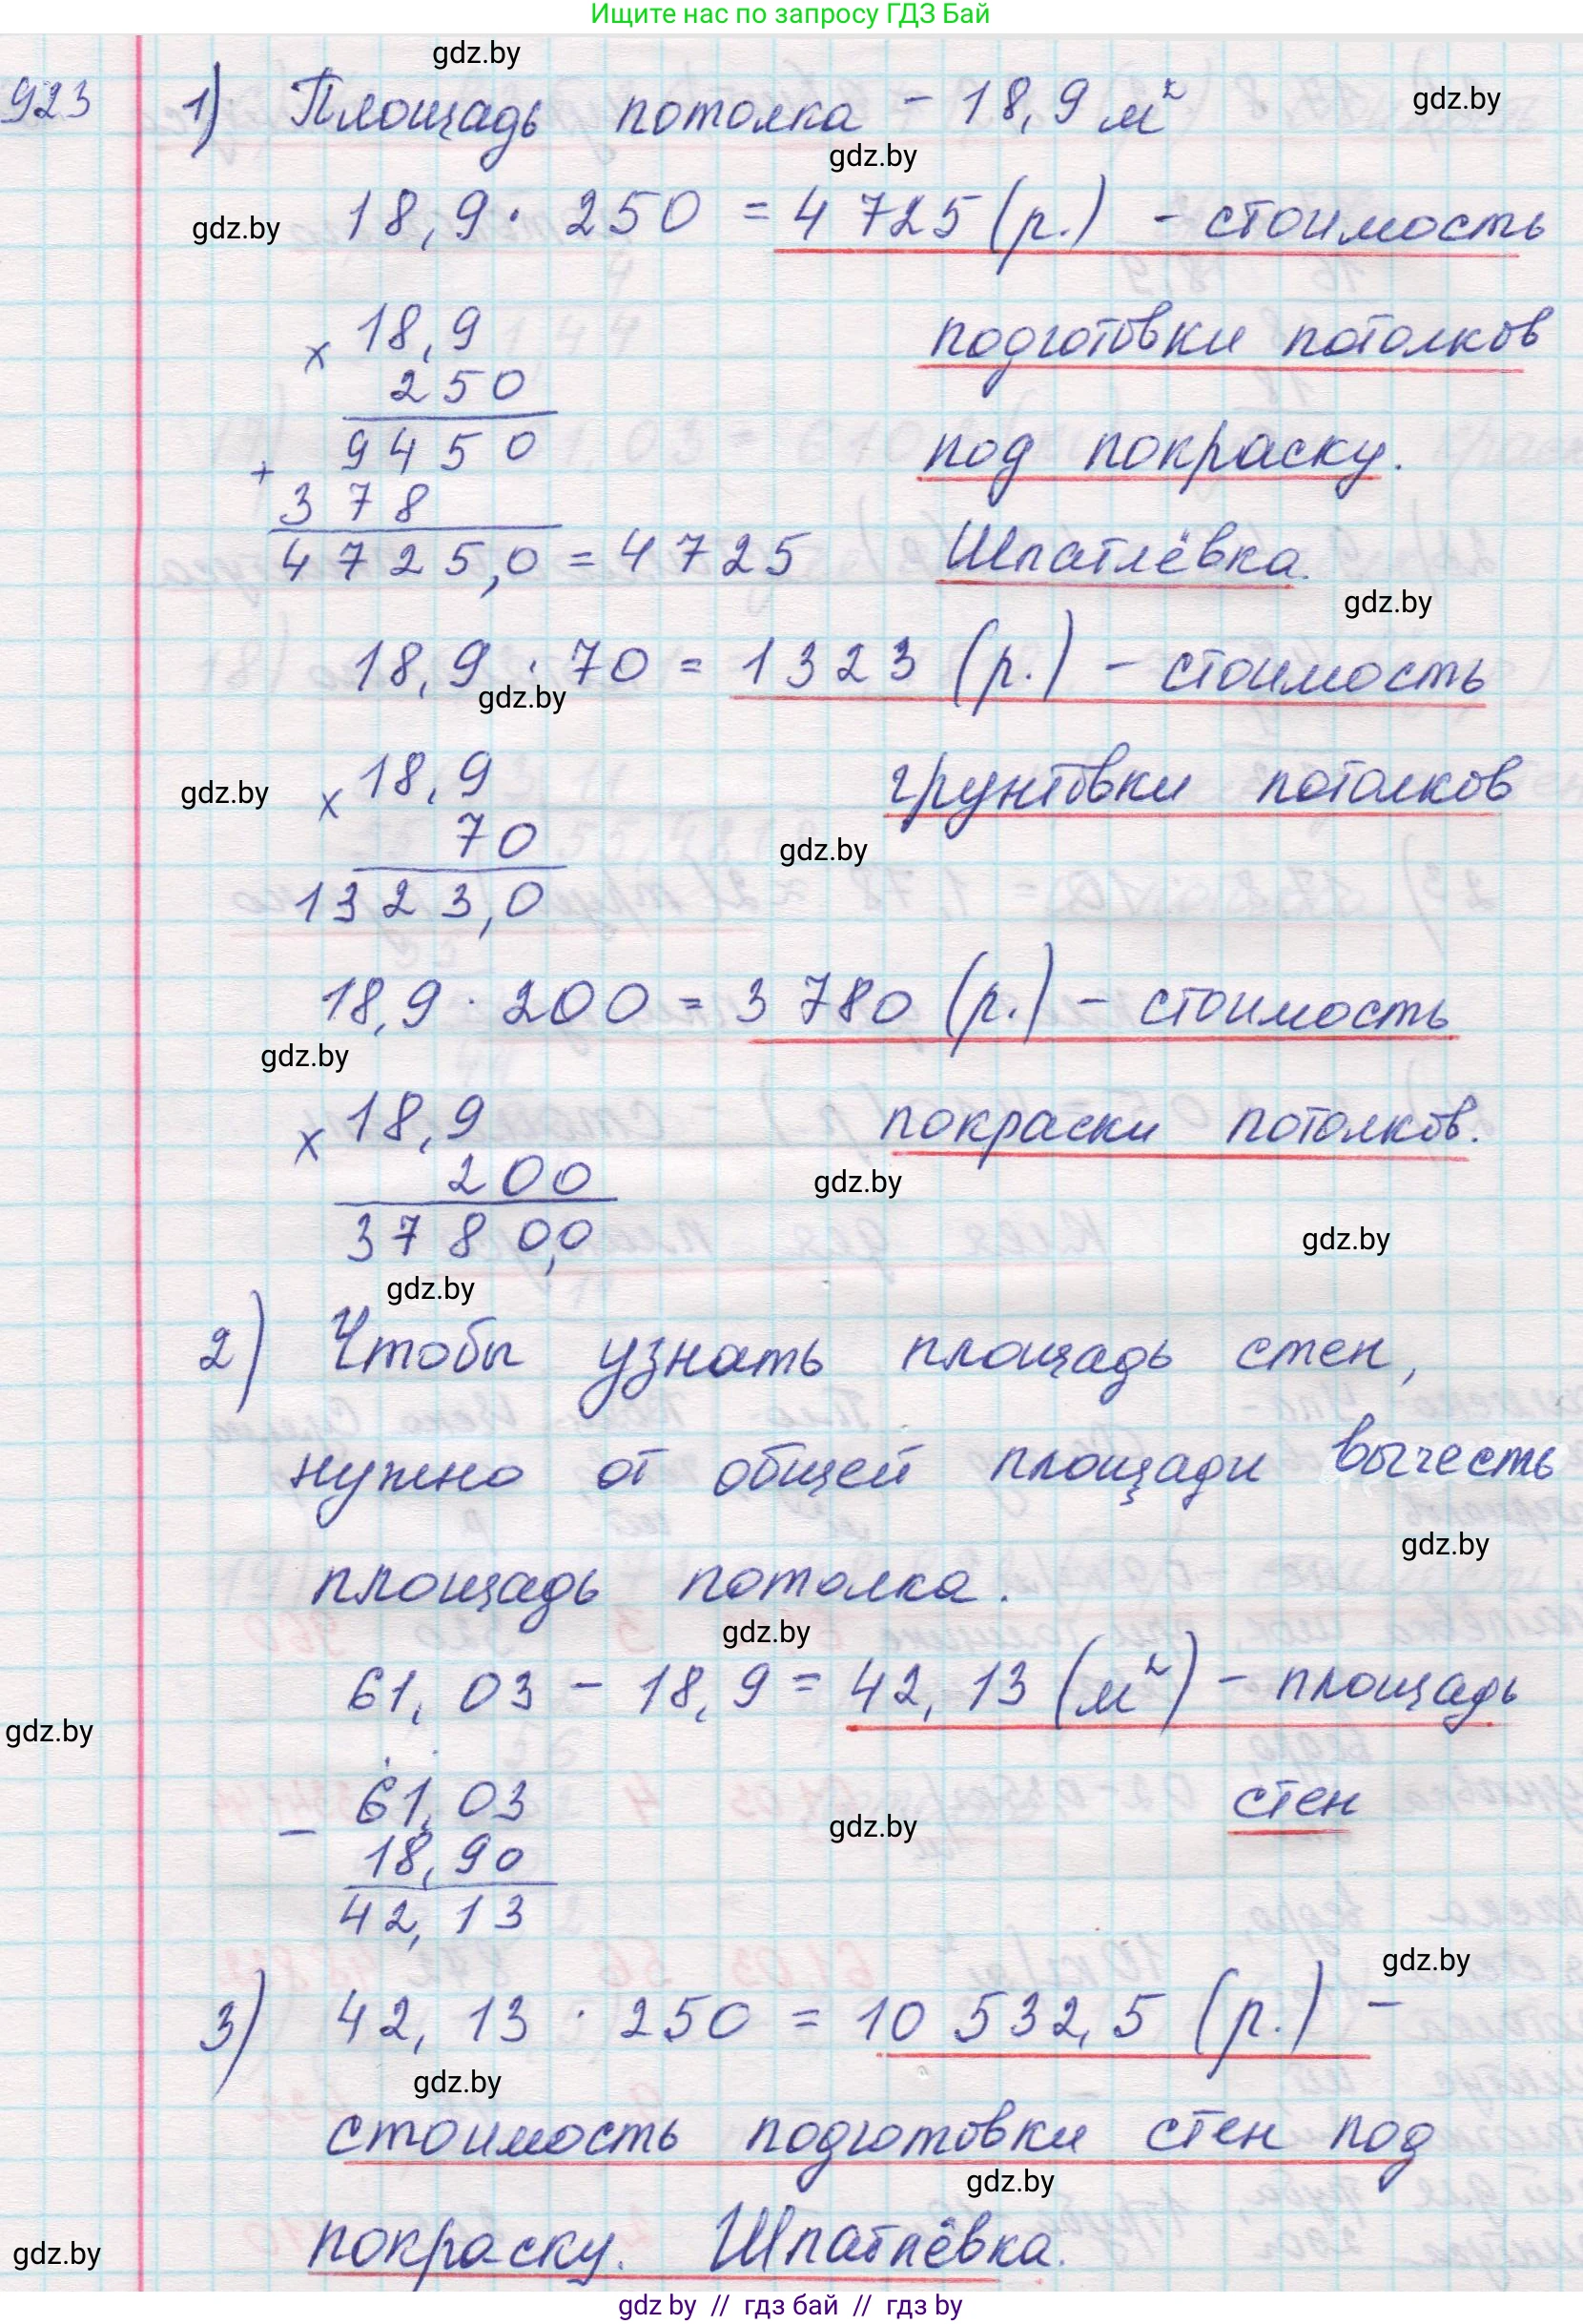 Ищите нас по запросу ГДЗ Бай
gdz.by
923 1) Площадь потолка - 18,9 м²
gdz.by
gdz.by
gdz.by 18,9 · 250 = 4 725 (р.) - стоимость
× 18,9 подготовки потолков
250
9450 под покраску.
+ 378
4725,0 = 4725 Шпатлёвка.
gdz.by
18,9 · 70 = 1323 (р.) - стоимость
gdz.by
gdz.by × 18,9 грунтовки потолков
70
gdz.by
1323,0
18,9 · 200 = 3 780 (р.) - стоимость
gdz.by
× 18,9 покраски потолков.
200
gdz.by
3780,0
gdz.by
gdz.by
2) Чтобы узнать площадь стен,
нужно от общей площади вычесть
gdz.by
площадь потолка.
gdz.by
61,03 - 18,9 = 42,13 (м²) - площадь
gdz.by
61,03 стен
gdz.by
- 18,90
42,13
gdz.by
3) 42,13 · 250 = 10 532,5 (р.) -
gdz.by
стоимость подготовки стен под
gdz.by
покраску. Шпатлёвка.
gdz.by
gdz by // гдз бай // гдз by